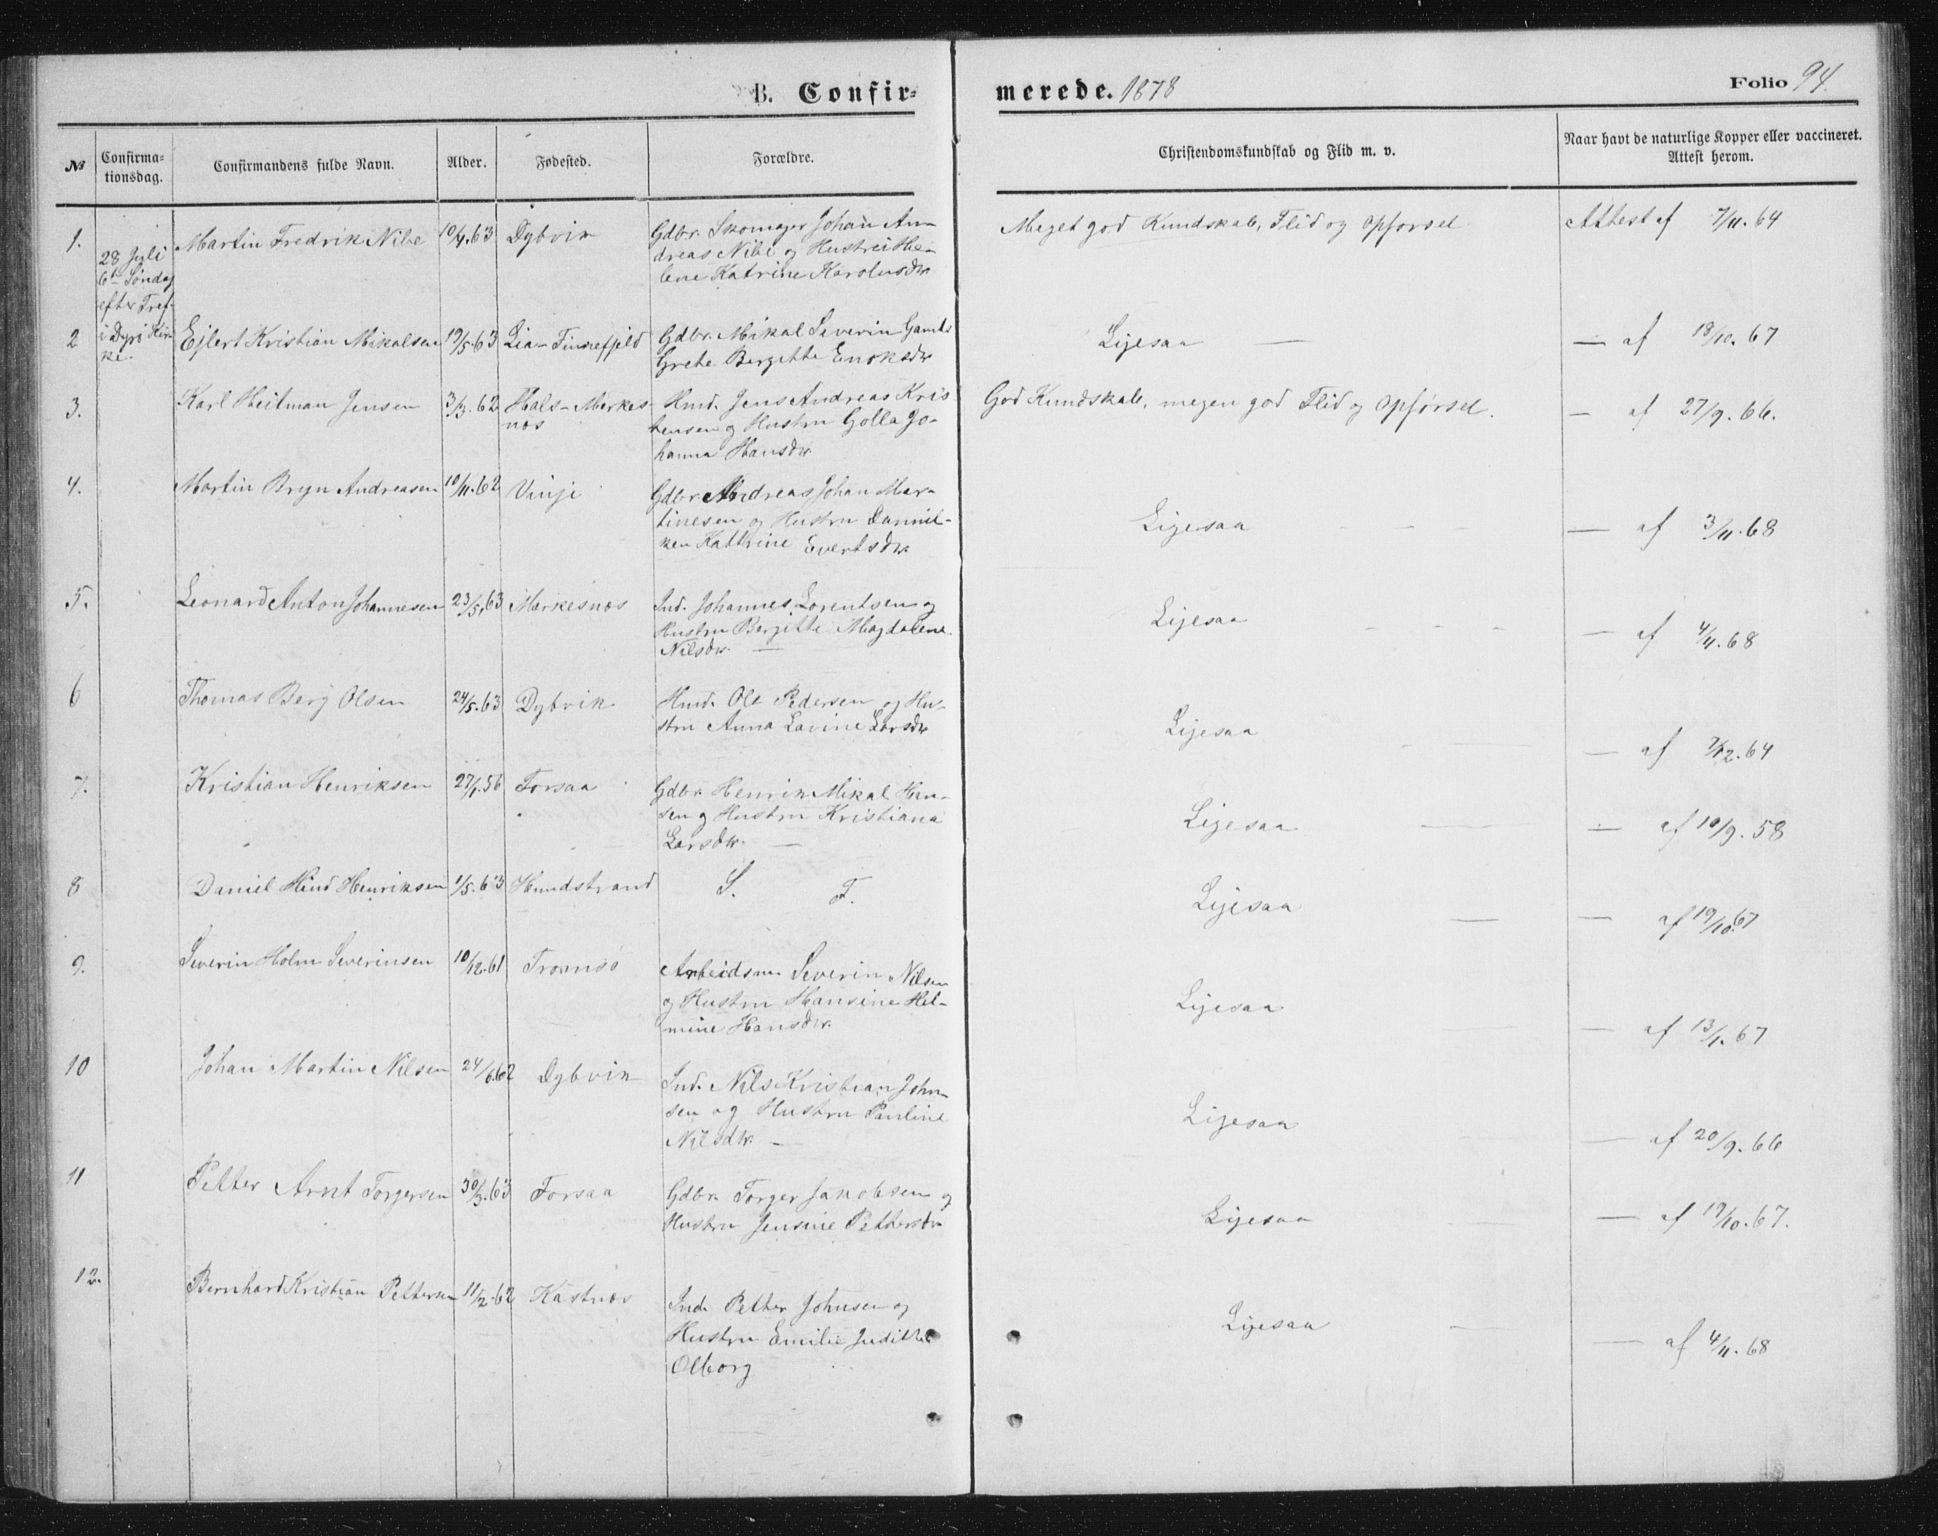 B. Confirmerede. 1878 Folio 94.
№ Confirmationsdag. Confirmandens fulde Navn. Alder. Fødested. Forældre. Christendomskundskab og Flid m. v. Naar havt de naturlige Kopper eller vaccineret. Attest herom.
1. Martin Fredrik Nibe 10/4.63 Dybvik Gdbr. Skomager Johan An- Meget god Kundskab, Flid og Opforsel Attest af 7/11.64
28 Juli dreas Nibe og Hustru He-
6te Søndag lene Katrine Karolusdtr
efter Tref.
2 i Dyrø Kir- Ejlert Kristian Mikalsen 19/5.63 Lia-Finnefjeld Gdbr. Mikal Severin Gamts Ligesaa — — af 18/10.67
ke. Grete Bergitte Enoksdtr
3. Karl Heitman Jensen 3/3.62 Hals-Merkes- Hmd. Jens Andreas Kris God Kundskab, megen god Flid og Opførsel. — af 27/9.66.
nøs tensen og Hustru Golla Jo-
hanna Hansdtr
4. Martin Bryn Andreasen 10/11.62 Vinje Gdbr. Andreas Johan Mar-
tinesen og Hustru Dannil- Ligesaa — — — — af 3/11.68
ken Kathrine Evertsdtr
5. Leonard Anton Johannesen 23/5.63 Merkesnøs Ind. Johannes Lorentsen og Ligesaa — — — — af 4/11.68
Hustru Bergitte Magdalena
Nilsdtr. —
6 Thomas Berg Olsen 24/5.63 Dybvik Hmd. Ole Pedersen og Hu-
stru Anna Lavine Larsdtr Ligesaa — — — af 7/12.64
7. Kristian Henriksen 27/1.56 Forsaa Gdbr. Henrik Mikal Han-
sen og Hustru Kristiana Ligesaa — — af 10/9.58
Larsdtr. —
8 Daniel Hind Henriksen 1/5.63 Hundstrand S. F. Ligesaa — — af 19/10.67
9. Severin Holm Severinsen 10/12.61 Tromsø Arbeidsm. Severin Nilsen
og Hustru Hansine Hel- Ligesaa — — af 13/1.67
mine Hansdtr.
10 Johan Martin Nilsen 24/6.62 Dybvik Ind. Nils Kristian John-
sen og Hustru Pauline Ligesaa — — af 20/9.66
Nilsdtr. —
11 Petter Arnt Torgersen 30/3.63 Forsaa Gdbr. Torger Jakobsen og Ligesaa — af 19/10.67.
Hustru Jensine Pettersdtr
12. Bernhard Kristian Pettersen 11/12.62 Kastnøs Ind. Petter Johnsen og Ligesaa — — af 4/11.68
Hustru Emilie Judithe
Olborg